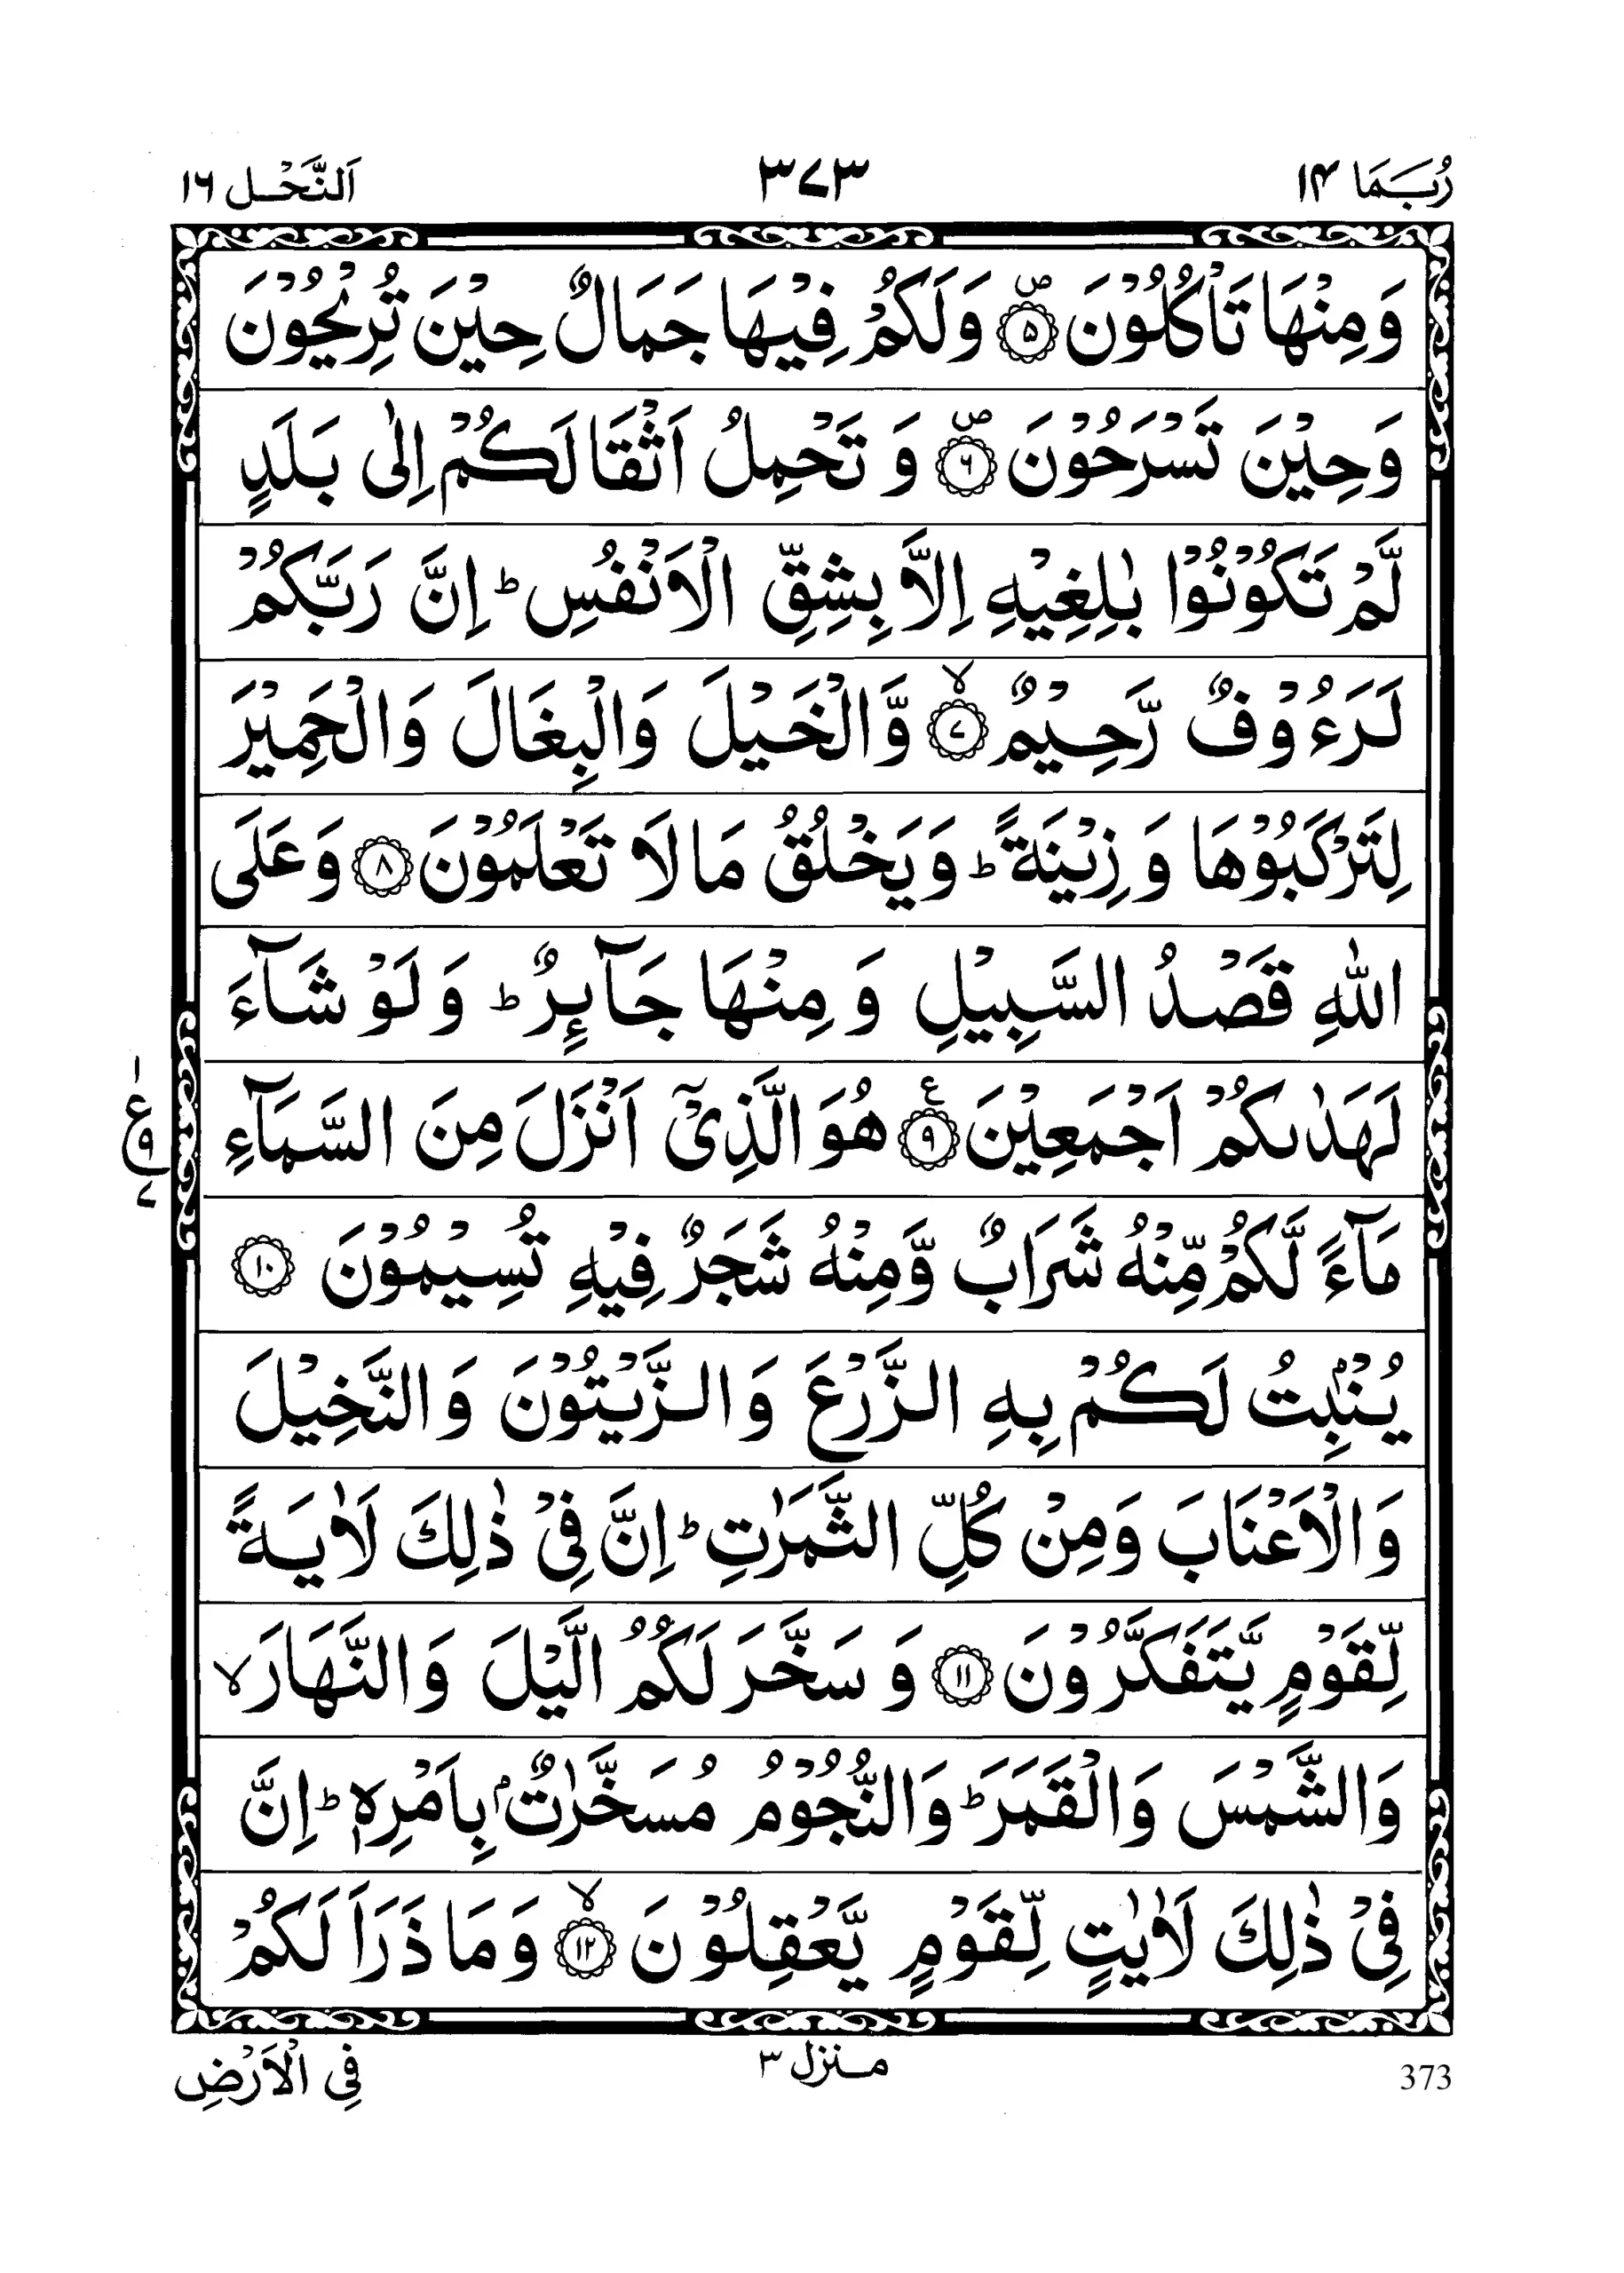 رُبَمَا ۱۴
۳۷۳
اَلنَّحْل ۱۶
وَمِنْهَا تَاْكُلُوْنَ ۪ۙ‏۵ وَلَكُمْ فِيْهَا جَمَالٌ حِيْنَ تُرِيْحُوْنَ
وَحِيْنَ تَسْرَحُوْنَ ۪‏۶ وَ تَحْمِلُ اَثْقَالَكُمْ اِلٰى بَلَدٍ
لَّمْ تَكُوْنُوْا بٰلِغِيْهِ اِلَّا بِشِقِّ الْاَنْفُسِ ؕ اِنَّ رَبَّكُمْ
لَرَءُوْفٌ رَّحِيْمٌ ۙ‏۷ وَّالْخَيْلَ وَالْبِغَالَ وَالْحَمِيْرَ
لِتَرْكَبُوْهَا وَ زِيْنَةً ؕ وَيَخْلُقُ مَا لَا تَعْلَمُوْنَ ‏۸ وَعَلَى
اللّٰهِ قَصْدُ السَّبِيْلِ وَ مِنْهَا جَآىِٕرٌ ؕ وَ لَوْ شَآءَ
لَهَدٰىكُمْ اَجْمَعِيْنَ ‏۹ ع هُوَ الَّذِيْۤ اَنْزَلَ مِنَ السَّمَآءِ
۱
ع
۹
۷
مَآءً لَّكُمْ مِّنْهُ شَرَابٌ وَّمِنْهُ شَجَرٌ فِيْهِ تُسِيْمُوْنَ ‏۱۰
يُنْۢبِتُ لَكُمْ بِهِ الزَّرْعَ وَالزَّيْتُوْنَ وَالنَّخِيْلَ
وَالْاَعْنَابَ وَمِنْ كُلِّ الثَّمَرٰتِ ؕ اِنَّ فِيْ ذٰلِكَ لَاٰيَةً
لِّقَوْمٍ يَّتَفَكَّرُوْنَ ‏۱۱ وَ سَخَّرَ لَكُمُ الَّيْلَ وَالنَّهَارَ ۙ
وَالشَّمْسَ وَالْقَمَرَ ؕ وَالنُّجُوْمُ مُسَخَّرٰتٌۢ بِاَمْرِهٖ ؕ اِنَّ
فِيْ ذٰلِكَ لَاٰيٰتٍ لِّقَوْمٍ يَّعْقِلُوْنَ ۙ‏۱۲ وَمَا ذَرَاَ لَكُمْ
منزل ۳
فِي الْاَرْضِ
373